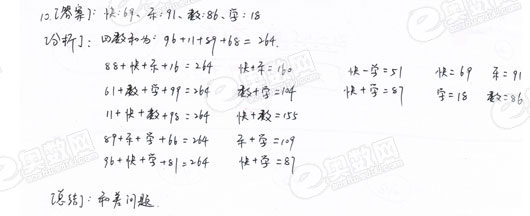 12.[答案]：快:69、乐:91、数:86、学:18
[分析]：四数和为：96+11+89+68=264.
88+快+乐+16=264 快+乐=160 快-学=51 快=69 乐=91
61+数+学+99=264 数+学=104 快+学=87 学=18 数=86
11+快+数+98=264 快+数=155
89+乐+学+66=264 乐+学=109
96+快+学+81=264 快+学=87
[总结]：和差问题.
e奥数网